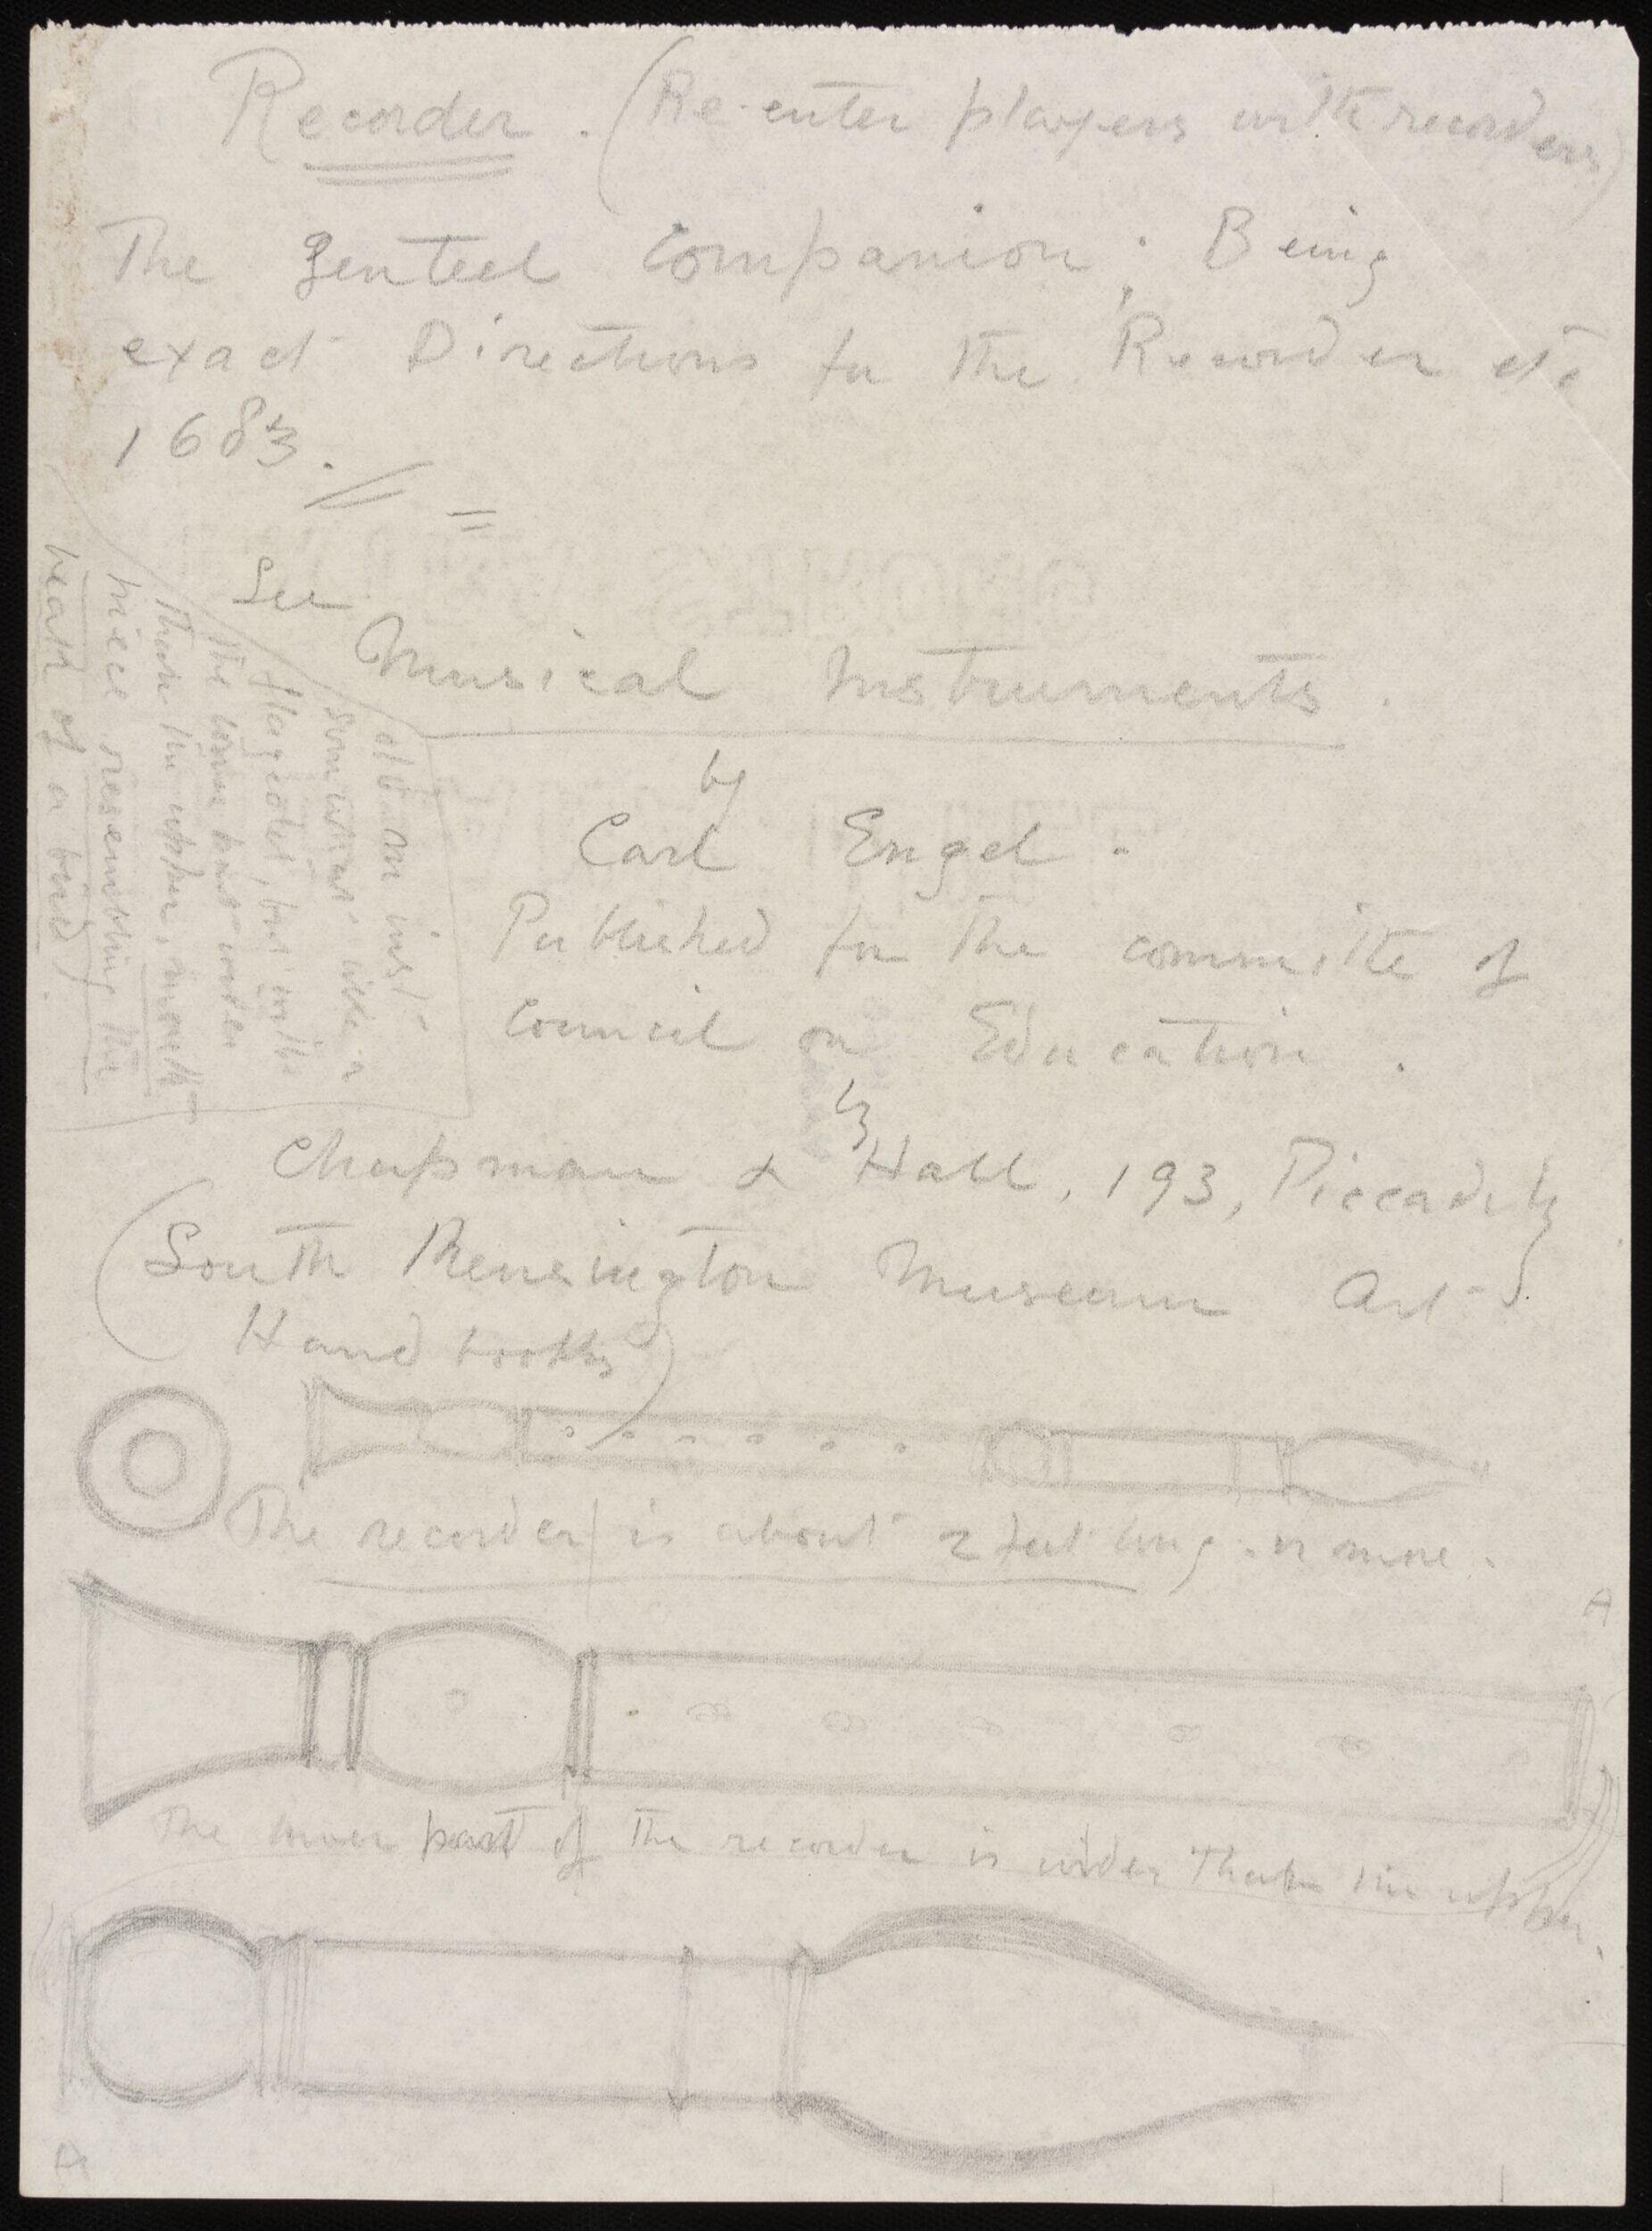 Recorder. (Re-enter players with recorders)
The Genteel Companion; Being
exact Directions for the Recorder etc
1683.
See
Musical Instruments.
by
Carl Engel.
Published for the committe of
Council on Education.
by
Chapman & Hall, 193, Piccadilly
(South Kensington Museum Art
Hand books)
somewhat like a
flageolet, but with
the lower part wider
than the upper, mouth
piece resembling the
beak of a bird)
The recorder is about 2 feet long or more.
A
The lower part of the recorder is wider than the upper.
A